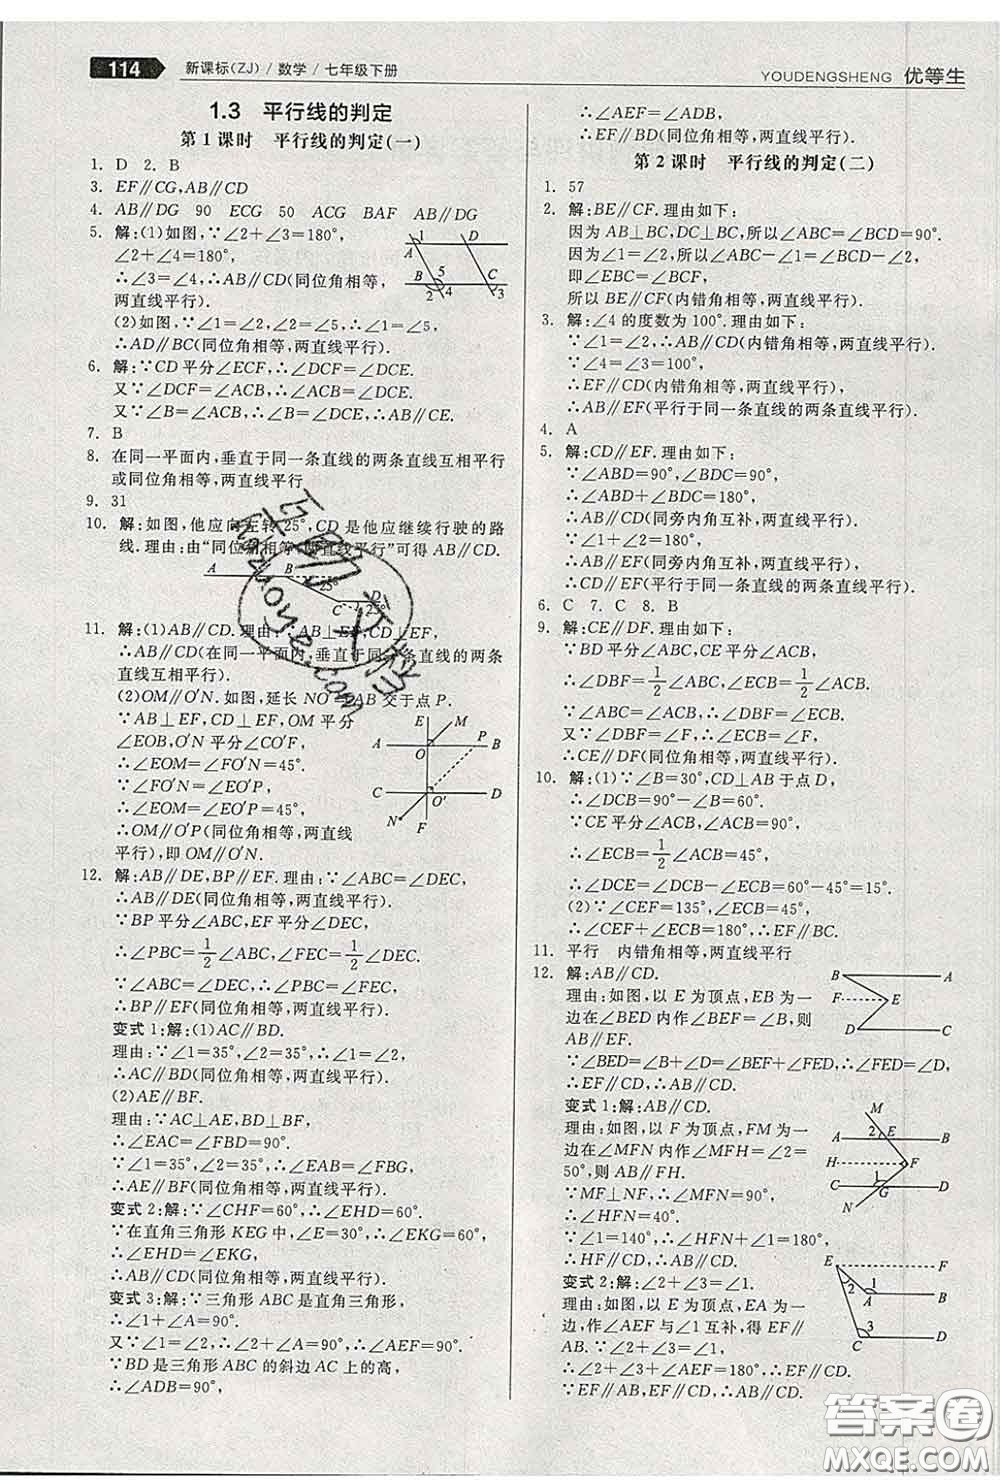 114 新课标(ZJ)/数学/七年级下册
YOUDENGSHENG 优等生
1.3 平行线的判定
第1课时 平行线的判定(一)
1. D 2. B
3. EF∥CG,AB∥CD
4. AB∥DG 90 ECG 50 ACG BAF AB∥DG
5. 解:(1)如图,∵∠2+∠3=180°,
∠2+∠4=180°,
∴∠3=∠4,∴AB∥CD(同位角相等,
两直线平行).
(2)如图,∵∠1=∠2,∠2=∠5,∴∠1=∠5,
∴AD∥BC(同位角相等,两直线平行).
6. 解:∵CD平分∠ECF,∴∠DCF=∠DCE.
又∵∠DCF=∠ACB,∴∠ACB=∠DCE.
又∵∠B=∠ACB,∴∠B=∠DCE,∴AB∥CD.
7. B
8. 在同一平面内,垂直于同一条直线的两条直线互相平行
或同位角相等,两直线平行
9. 31
10. 解:如图,他应向左转25°,CD是他应继续行驶的路
线.理由:由“同位角相等,两直线平行”可得AB∥CD.
A B 25° C D 25°
11. 解:(1)AB∥CD.理由:∵AB⊥EF,CD⊥EF,
∴AB∥CD(在同一平面内,垂直于同一条直线的两条
直线互相平行).
(2)OM∥O'N.如图,延长NO'与AB交于点P.
∵AB⊥EF,CD⊥EF,OM平分
∠EOB,O'N平分∠CO'F,
∴∠EOM=∠FO'N=45°.
∵∠FO'N=∠EO'P,
∴∠EOM=∠EO'P=45°,
∴OM∥O'P(同位角相等,两直线
平行),即OM∥O'N.
12. 解:AB∥DE,BP∥EF.理由:∵∠ABC=∠DEC,
∴AB∥DE(同位角相等,两直线平行).
∵BP平分∠ABC,EF平分∠DEC,
∴∠PBC=1/2∠ABC,∠FEC=1/2∠DEC,
∴∠PBC=∠FEC,
∴BP∥EF(同位角相等,两直线平行).
变式1:解:(1)AC∥BD.
理由:∵∠1=35°,∠2=35°,∴∠1=∠2,
∴AC∥BD(同位角相等,两直线平行).
(2)AE∥BF.
理由:∵AC⊥AE,BD⊥BF,
∴∠EAC=∠FBD=90°.
∵∠1=35°,∠2=35°,∴∠EAB=∠FBG,
∴AE∥BF(同位角相等,两直线平行).
变式2:解:∵∠CHF=60°,∴∠EHD=60°.
∵在直角三角形KEG中,∠E=30°,∴∠EKG=60°,
∴∠EHD=∠EKG,
∴AB∥CD(同位角相等,两直线平行).
变式3:解:∵三角形ABC是直角三角形,
∴∠1+∠A=90°.
又∵∠1=∠2,∴∠2+∠A=90°,∴∠AEF=90°.
∵BD是三角形ABC的斜边AC上的高,
∴∠ADB=90°,
∴∠AEF=∠ADB,
∴EF∥BD(同位角相等,两直线平行).
第2课时 平行线的判定(二)
1. 57
2. 解:BE∥CF.理由如下:
因为AB⊥BC,DC⊥BC,所以∠ABC=∠BCD=90°.
因为∠1=∠2,所以∠ABC-∠1=∠BCD-∠2,
即∠EBC=∠FCB.
所以BE∥CF(内错角相等,两直线平行).
3. 解:∠4的度数为100°.理由如下:
∵∠1=∠2,∴AB∥CD(内错角相等,两直线平行).
∵∠4=∠3=100°,
∴EF∥CD(内错角相等,两直线平行),
∴AB∥EF(平行于同一条直线的两条直线平行).
4. A
5. 解:CD∥EF.理由如下:
∵∠ABD=90°,∠BDC=90°,
∴∠ABD+∠BDC=180°,
∴AB∥CD(同旁内角互补,两直线平行).
∵∠1+∠2=180°,
∴AB∥EF(同旁内角互补,两直线平行),
∴CD∥EF(平行于同一条直线的两条直线平行).
6. C 7. C 8. B
9. 解:CE∥DF.理由如下:
∵BD平分∠ABC,CE平分∠ACB,
∴∠DBF=1/2∠ABC,∠ECB=1/2∠ACB.
∵∠ABC=∠ACB,∴∠DBF=∠ECB.
又∵∠DBF=∠F,∴∠ECB=∠F,
∴CE∥DF(同位角相等,两直线平行).
10. 解:(1)∵∠B=30°,CD⊥AB于点D,
∴∠DCB=90°-∠B=60°.
∵CE平分∠ACB,∠ACB=90°,
∴∠ECB=1/2∠ACB=45°,
∴∠DCE=∠DCB-∠ECB=60°-45°=15°.
(2)∵∠CEF=135°,∠ECB=45°,
∴∠CEF+∠ECB=180°,∴EF∥BC.
11. 平行 内错角相等,两直线平行
12. 解:AB∥CD.
理由:如图,以E为顶点,EB为
一边在∠BED内作∠BEF=∠B,则
AB∥EF.
∵∠BED=∠B+∠D=∠BEF+∠FED,∴∠FED=∠D,
∴EF∥CD,∴AB∥CD.
变式1:解:AB∥CD.
理由:如图,以F为顶点,FM为一
边在∠MFN内作∠MFH=∠2=
50°,则AB∥FH.
∵MF⊥NF,∴∠MFN=90°,
∴∠HFN=40°.
∵∠1=140°,∴∠HFN+∠1=180°,
∴HF∥CD,∴AB∥CD.
变式2:解:∠2+∠3=∠1.
理由:如图,以E为顶点,EA为一
边,作∠AEF与∠1互补,得EF∥
AB.∵∠1=∠2+∠3,
∴∠2+∠3+∠AEF=180°,∴EF∥CD.
∵EF∥AB,EF∥CD,∴AB∥CD.
答案圈
MXQE.COM